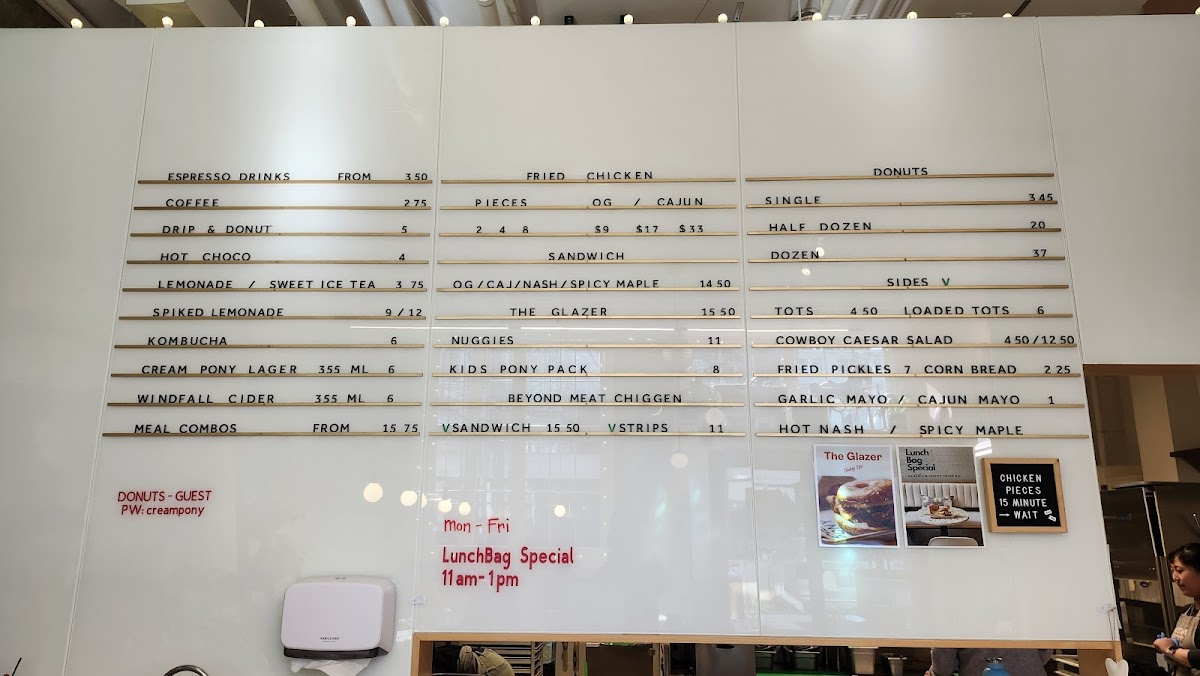 ESPRESSO DRINKS FROM 3 50
COFFEE 2 75
DRIP & DONUT 5
HOT CHOCO 4
LEMONADE / SWEET ICE TEA 3 75
SPIKED LEMONADE 9 / 12
KOMBUCHA 6
CREAM PONY LAGER 355 ML 6
WINDFALL CIDER 355 ML 6
MEAL COMBOS FROM 15 75
DONUTS - GUEST
PW: creampony
FRIED CHICKEN
PIECES OG / CAJUN
2 4 8 $9 $17 $33
SANDWICH
OG/CAJ/NASH/SPICY MAPLE 14 50
THE GLAZER 15 50
NUGGIES 11
KIDS PONY PACK 8
BEYOND MEAT CHIGGEN
V SANDWICH 15 50 V STRIPS 11
Mon - Fri
LunchBag Special
11am-1pm
DONUTS
SINGLE 3 45
HALF DOZEN 20
DOZEN 37
SIDES V
TOTS 4 50 LOADED TOTS 6
COWBOY CAESAR SALAD 4 50 / 12 50
FRIED PICKLES 7 CORN BREAD 2 25
GARLIC MAYO / CAJUN MAYO 1
HOT NASH / SPICY MAPLE
The Glazer
Lunch
Bag
Special
CHICKEN
PIECES
15 MINUTE
→ WAIT